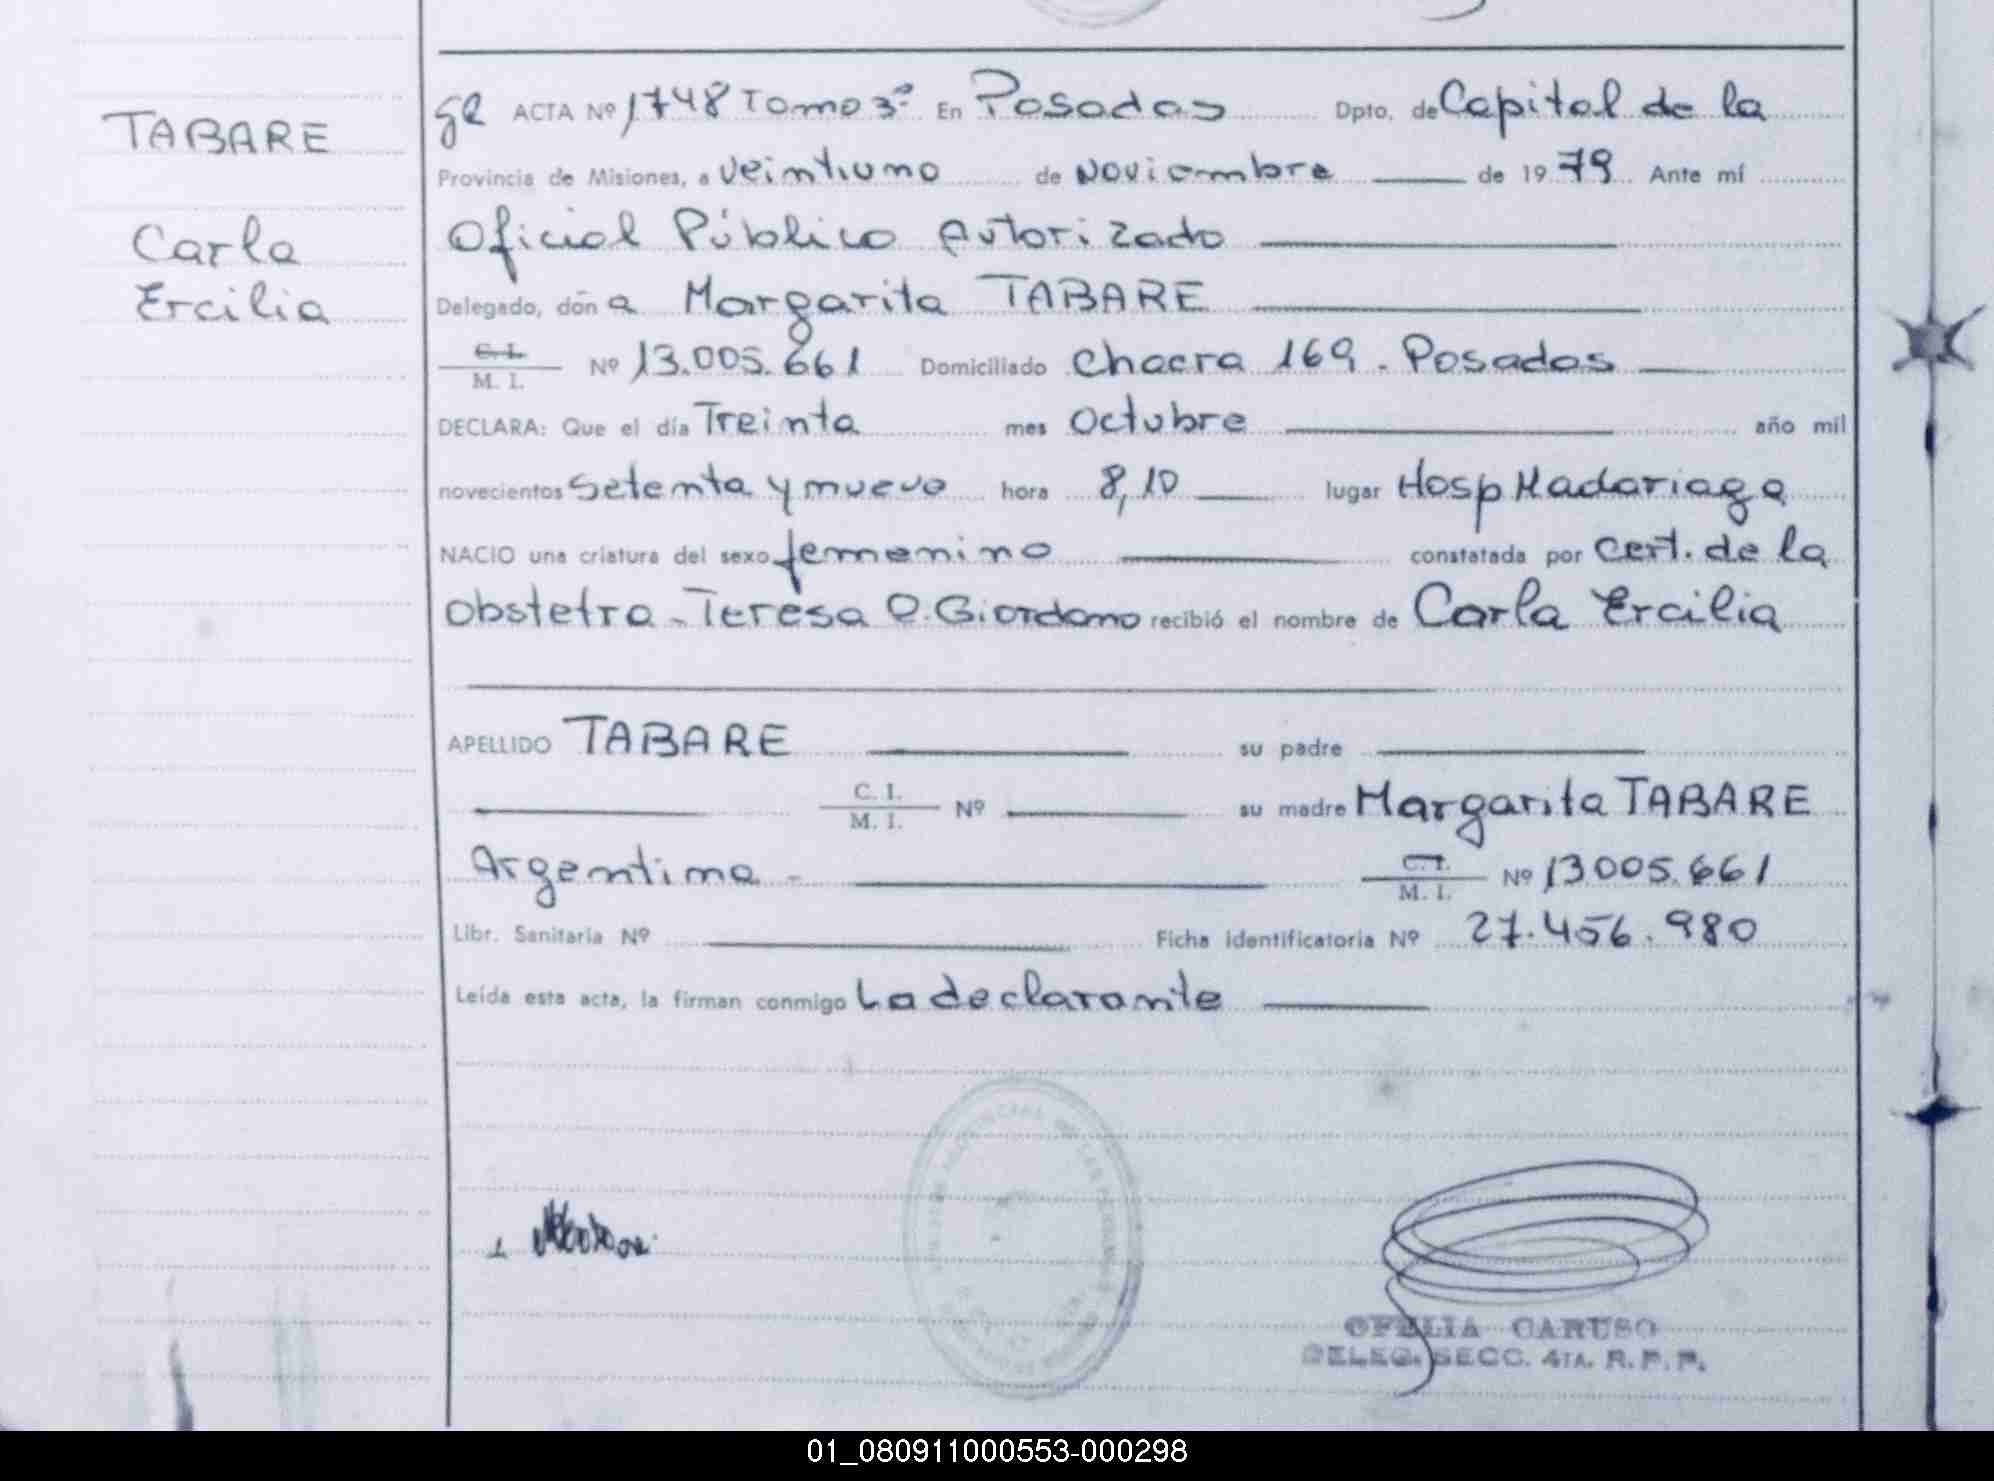 TABARE
Carla
Ercilia
ACTA Nº 1748 Tomo 3º En Posadas Dpto. de Capital de la
Provincia de Misiones, a veintiuno de Noviembre de 1979 Ante mí
Oficial Público Autorizado
Delegado, don a Margarita TABARE
C. I. M. I. Nº 13.005.661 Domiciliado Chacra 169. Posadas
DECLARA: Que el día Treinta mes Octubre año mil
novecientos setenta y nueve hora 8,10 lugar Hosp Madariaga
NACIO una criatura del sexo femenino constatada por Cert. de la
Obstetra - Teresa O. Giordano recibió el nombre de Carla Ercilia
APELLIDO TABARE su padre
C. I. M. I. Nº su madre Margarita TABARE
Argentina - C. I. M. I. Nº 13.005.661
Libr. Sanitaria Nº Ficha identificatoria Nº 27.456.980
Leída esta acta, la firman conmigo La declarante
OFELIA CARUSO
DELEG. SECC. 4TA. R.P.P.
01_080911000553-000298